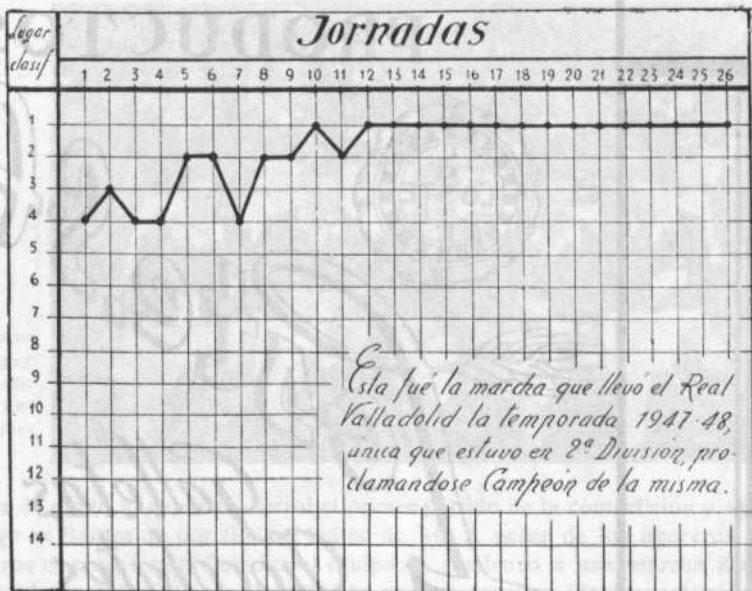 Lugar
clasif
Jornadas
1 2 3 4 5 6 7 8 9 10 11 12 13 14 15 16 17 18 19 20 21 22 23 24 25 26
1
2
3
4
5
6
7
8
9
10
11
12
13
14
Esta fué la marcha que llevó el Real
Valladolid la temporada 1947-48,
única que estuvo en 2ª División, pro-
clamandose Campeón de la misma.